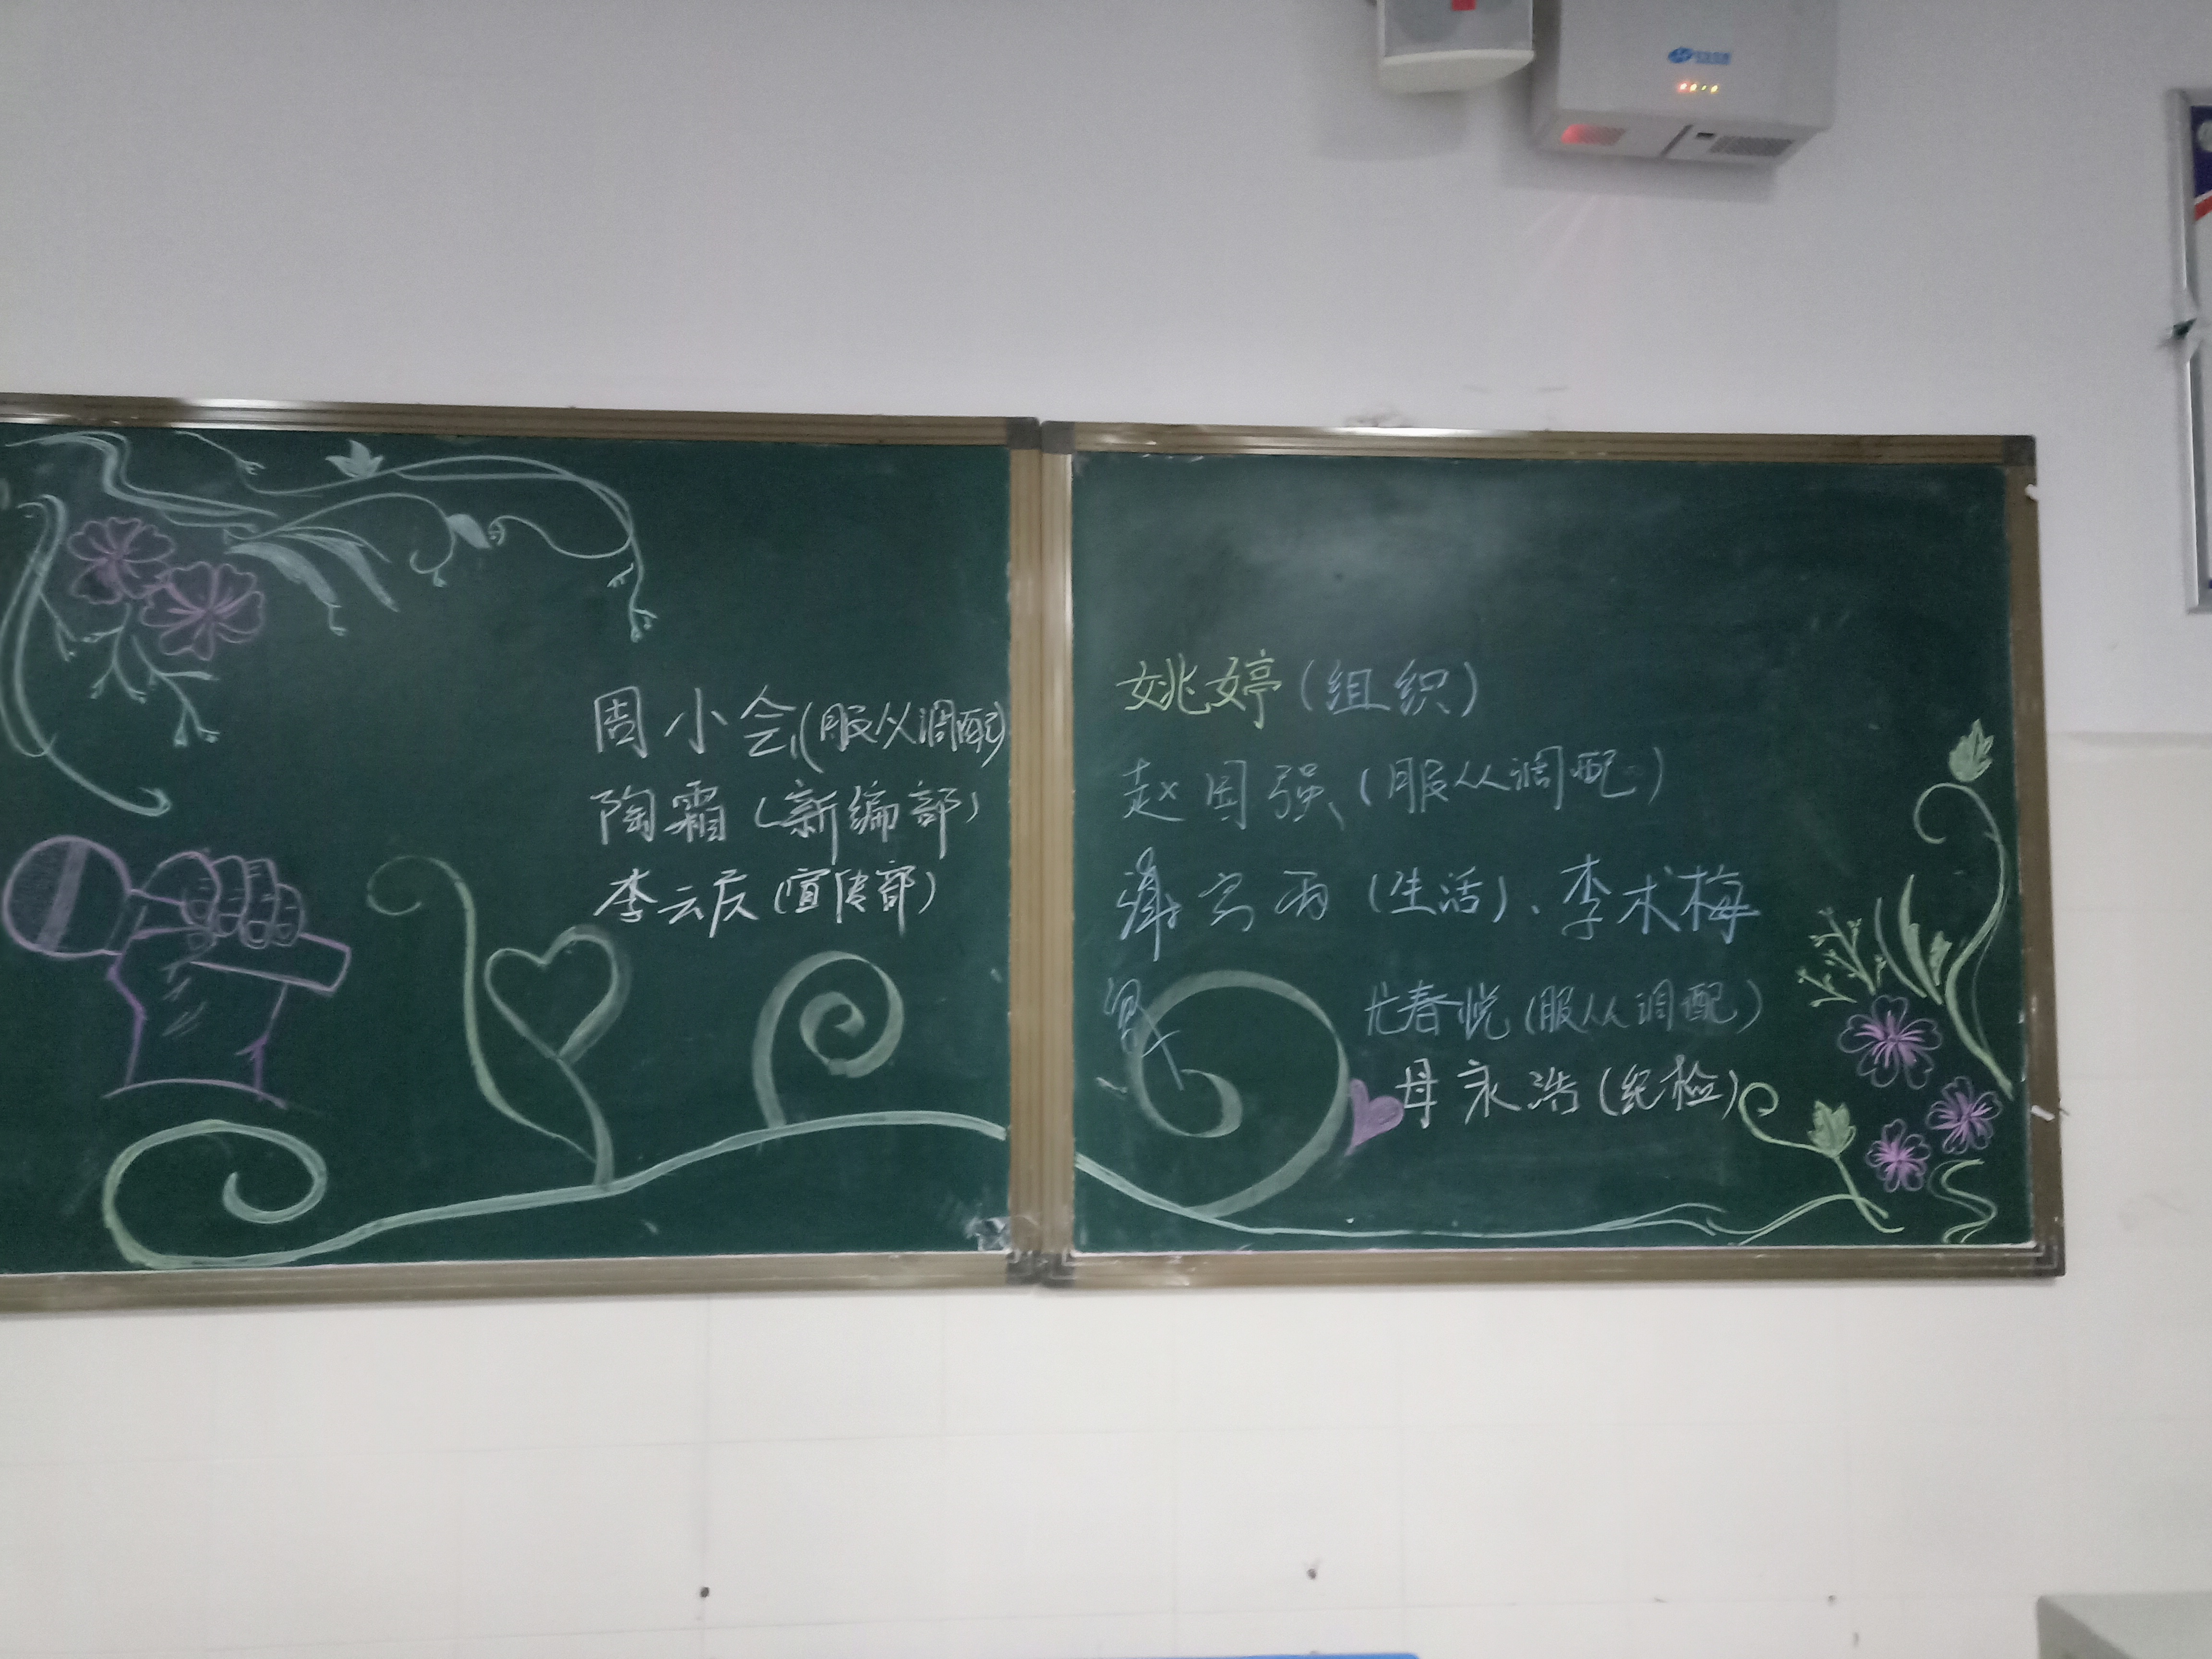 周小会(服从调配)
陶霜(新编部)
李云友(宣传部)
姚婷(组织)
赵国强(服从调配)
(生活)、李术梅
尤春悦(服从调配)
母永浩(纪检)